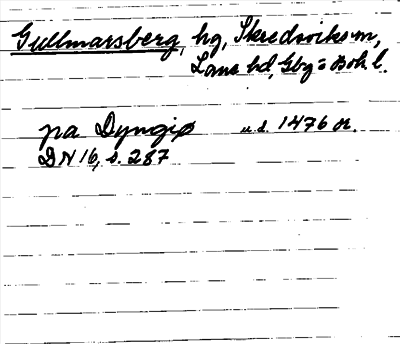 Gullmarsberg, hg, Skredsviks sn,
Lane hd, Gbg o Boh l.
pa Dyngiø u.d. 1476 or.
DN 16, s. 287